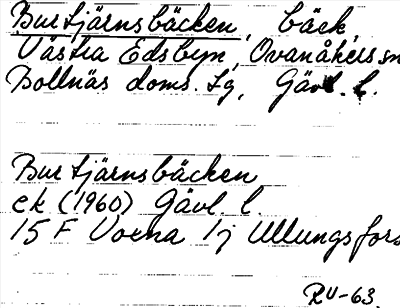 Burtjärnsbäcken, bäck,
Västra Edsbyn, Ovanåkers sn
Bollnäs doms. tg, Gävl. l.
Burtjärnsbäcken
ek (1960) Gävl. l.
15 F Voxna 1j Ullungsfors
RU-63.